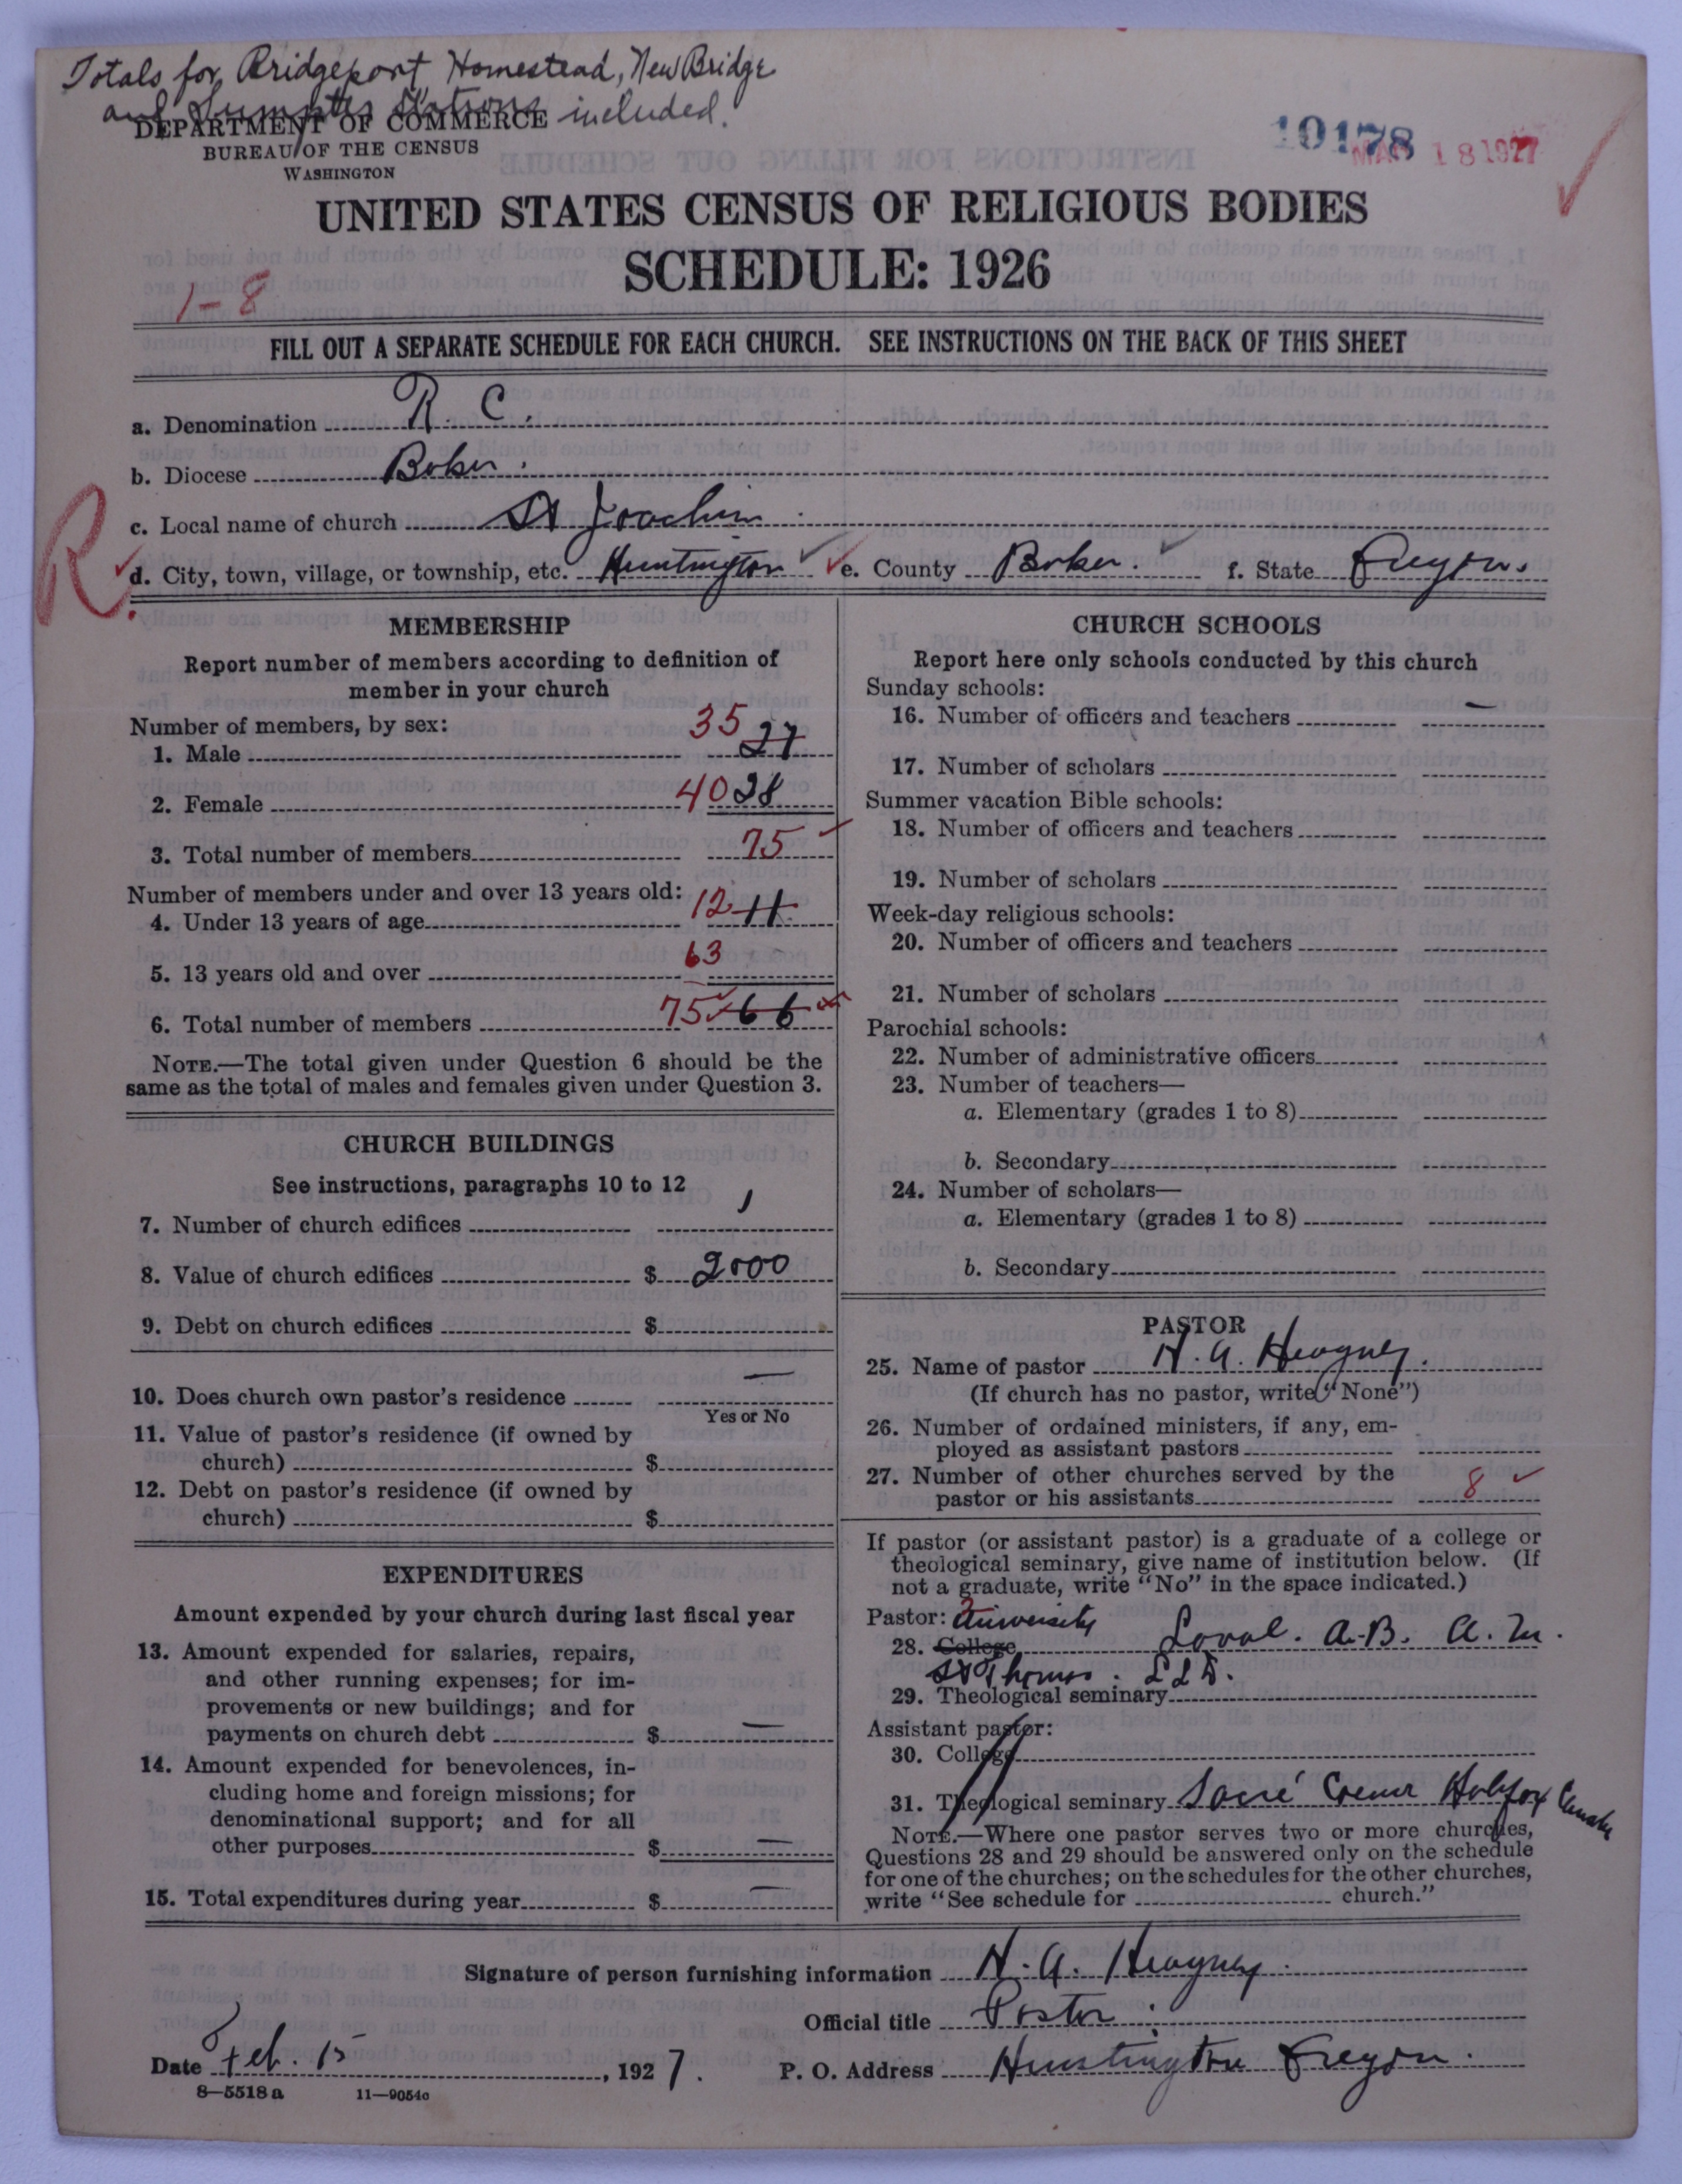 Totals for Bridgeport, Homestead, New Bridge
and Sumpter Stations included.
DEPARTMENT OF COMMERCE
BUREAU OF THE CENSUS
WASHINGTON
10178
MAR 18 1927
UNITED STATES CENSUS OF RELIGIOUS BODIES
SCHEDULE: 1926
1-8
FILL OUT A SEPARATE SCHEDULE FOR EACH CHURCH. SEE INSTRUCTIONS ON THE BACK OF THIS SHEET
a. Denomination R. C.
b. Diocese Baker.
c. Local name of church St Joachim
R.
d. City, town, village, or township, etc. Huntington e. County Baker. f. State Oregon.
MEMBERSHIP
Report number of members according to definition of
member in your church
Number of members, by sex:
1. Male 35 27
2. Female 40 28
3. Total number of members 75
Number of members under and over 13 years old:
4. Under 13 years of age 12 11
5. 13 years old and over 63
6. Total number of members 75 66
NOTE.—The total given under Question 6 should be the
same as the total of males and females given under Question 3.
CHURCH BUILDINGS
See instructions, paragraphs 10 to 12
7. Number of church edifices 1
8. Value of church edifices $ 2000
9. Debt on church edifices $
10. Does church own pastor's residence —
Yes or No
11. Value of pastor's residence (if owned by
church) $
12. Debt on pastor's residence (if owned by
church) $
EXPENDITURES
Amount expended by your church during last fiscal year
13. Amount expended for salaries, repairs,
and other running expenses; for im-
provements or new buildings; and for
payments on church debt $ —
14. Amount expended for benevolences, in-
cluding home and foreign missions; for
denominational support; and for all
other purposes $ —
15. Total expenditures during year $ —
CHURCH SCHOOLS
Report here only schools conducted by this church
Sunday schools:
16. Number of officers and teachers —
17. Number of scholars
Summer vacation Bible schools:
18. Number of officers and teachers
19. Number of scholars
Week-day religious schools:
20. Number of officers and teachers
21. Number of scholars
Parochial schools:
22. Number of administrative officers
23. Number of teachers—
a. Elementary (grades 1 to 8)
b. Secondary
24. Number of scholars—
a. Elementary (grades 1 to 8)
b. Secondary
PASTOR
25. Name of pastor H. A. Heagney.
(If church has no pastor, write "None")
26. Number of ordained ministers, if any, em-
ployed as assistant pastors
27. Number of other churches served by the
pastor or his assistants 8
If pastor (or assistant pastor) is a graduate of a college or
theological seminary, give name of institution below. (If
not a graduate, write "No" in the space indicated.)
Pastor: University
28. College Laval. A.B. A.M.
St Thomas. LLD.
29. Theological seminary
Assistant pastor:
30. College
31. Theological seminary Sacré Coeur Halifax Canada
NOTE.—Where one pastor serves two or more churches,
Questions 28 and 29 should be answered only on the schedule
for one of the churches; on the schedules for the other churches,
write "See schedule for church."
Signature of person furnishing information H. A. Heagney.
Official title Pastor.
Date Feb. 15, 1927. P. O. Address Huntington Oregon.
8—5518a 11—9054c